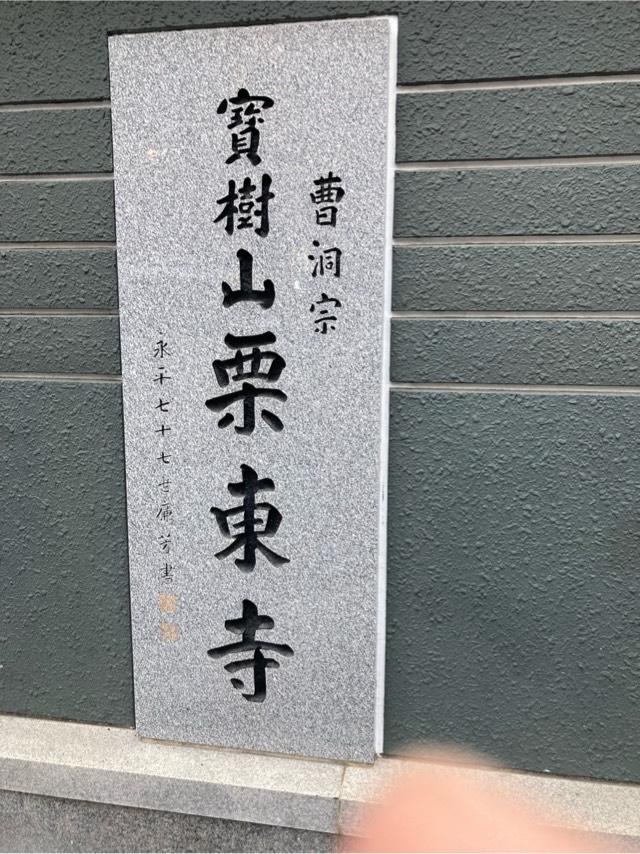 曹洞宗
寶樹山栗東寺
永平七十七世廉芳書